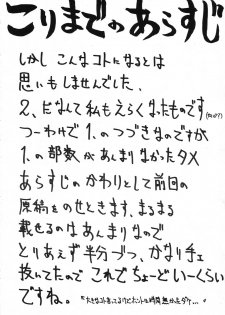 こりまでのあらすじ
しかし こんなコトになるとは
思いもしませんでした、
2、だなんて私もえらくなったものです
つーわけで 1、のつづきなのですが
1、の部数があんまりなかったタメ
あらすじのかわりとして前回の
原稿をのせときます、まるまる
載せるのはあんまりなので
とりあえず半分づつ、かなり手ェ
抜いてたので これでちょーどいーくらい
ですね。